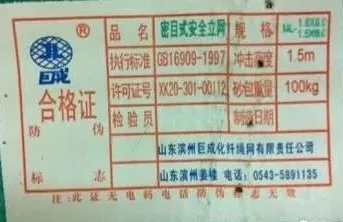 ®
品名 密目式安全立网 规格 ML-1.8X6.0
巨成 执行标准 GB16909-1997 冲击高度 1.5m
合格证 许可证号 XK20-301-00112 砂包重量 100kg
防伪 检验员 制造日期
山东滨州巨成化纤绳网有限责任公司
标志 山东滨州姜楼 电话：0543-5891135
注：此证无电码电话防伪标志无效